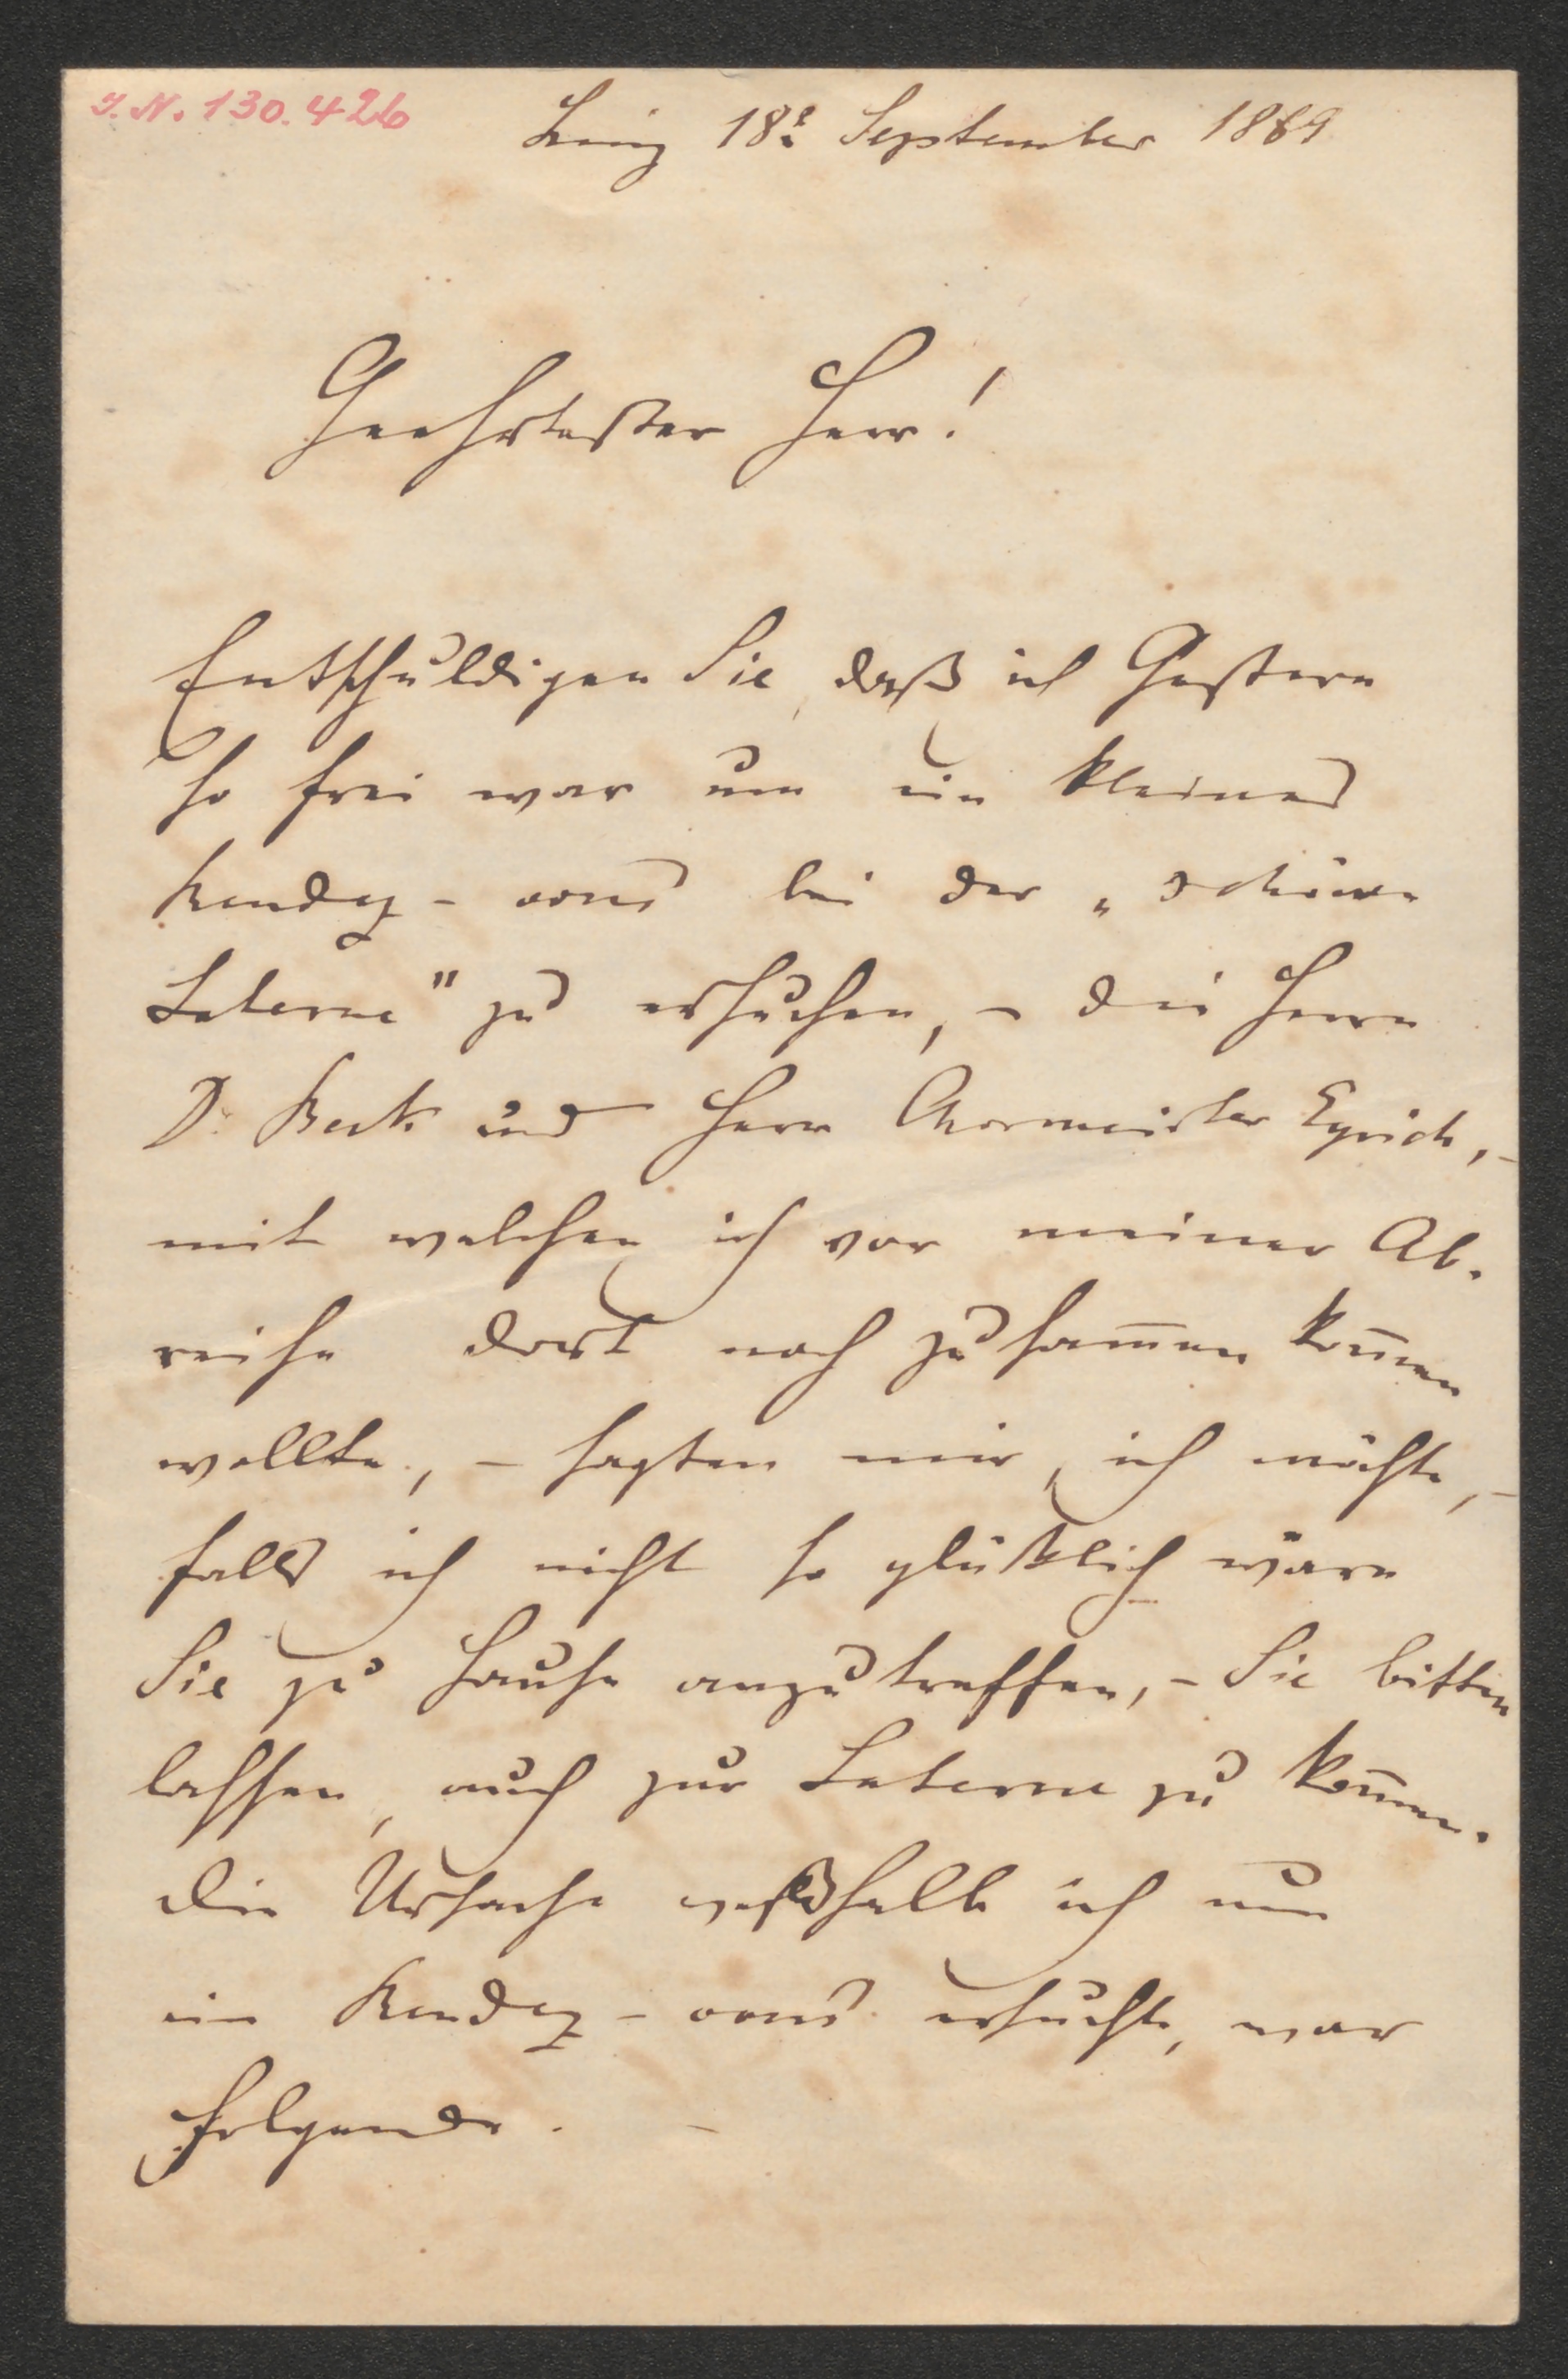 I. N. 130.426
Linz 18t September 1869
Geehrtester Herr!
Entschuldigen Sie, daß ich Gestern
so frei war um ein kleines
Rendez-vous bei der „schöne
Laterne" zu ersuchen, – die Herrn
Dr Beck und Herr Chormeister Eyrich, –
mit welchen ich vor meiner Ab-
reise dort noch zusam̅en kom̅en
wollte, – sagten mir, ich möchte, –
falls ich nicht so glüklich wäre
Sie zu Hause anzutreffen, – Sie bitten
lassen, auch zur Laterne zu kom̅en.
Die Ursache weßhalb ich um
ein Rendez-vous ersuchte, war
folgende. –